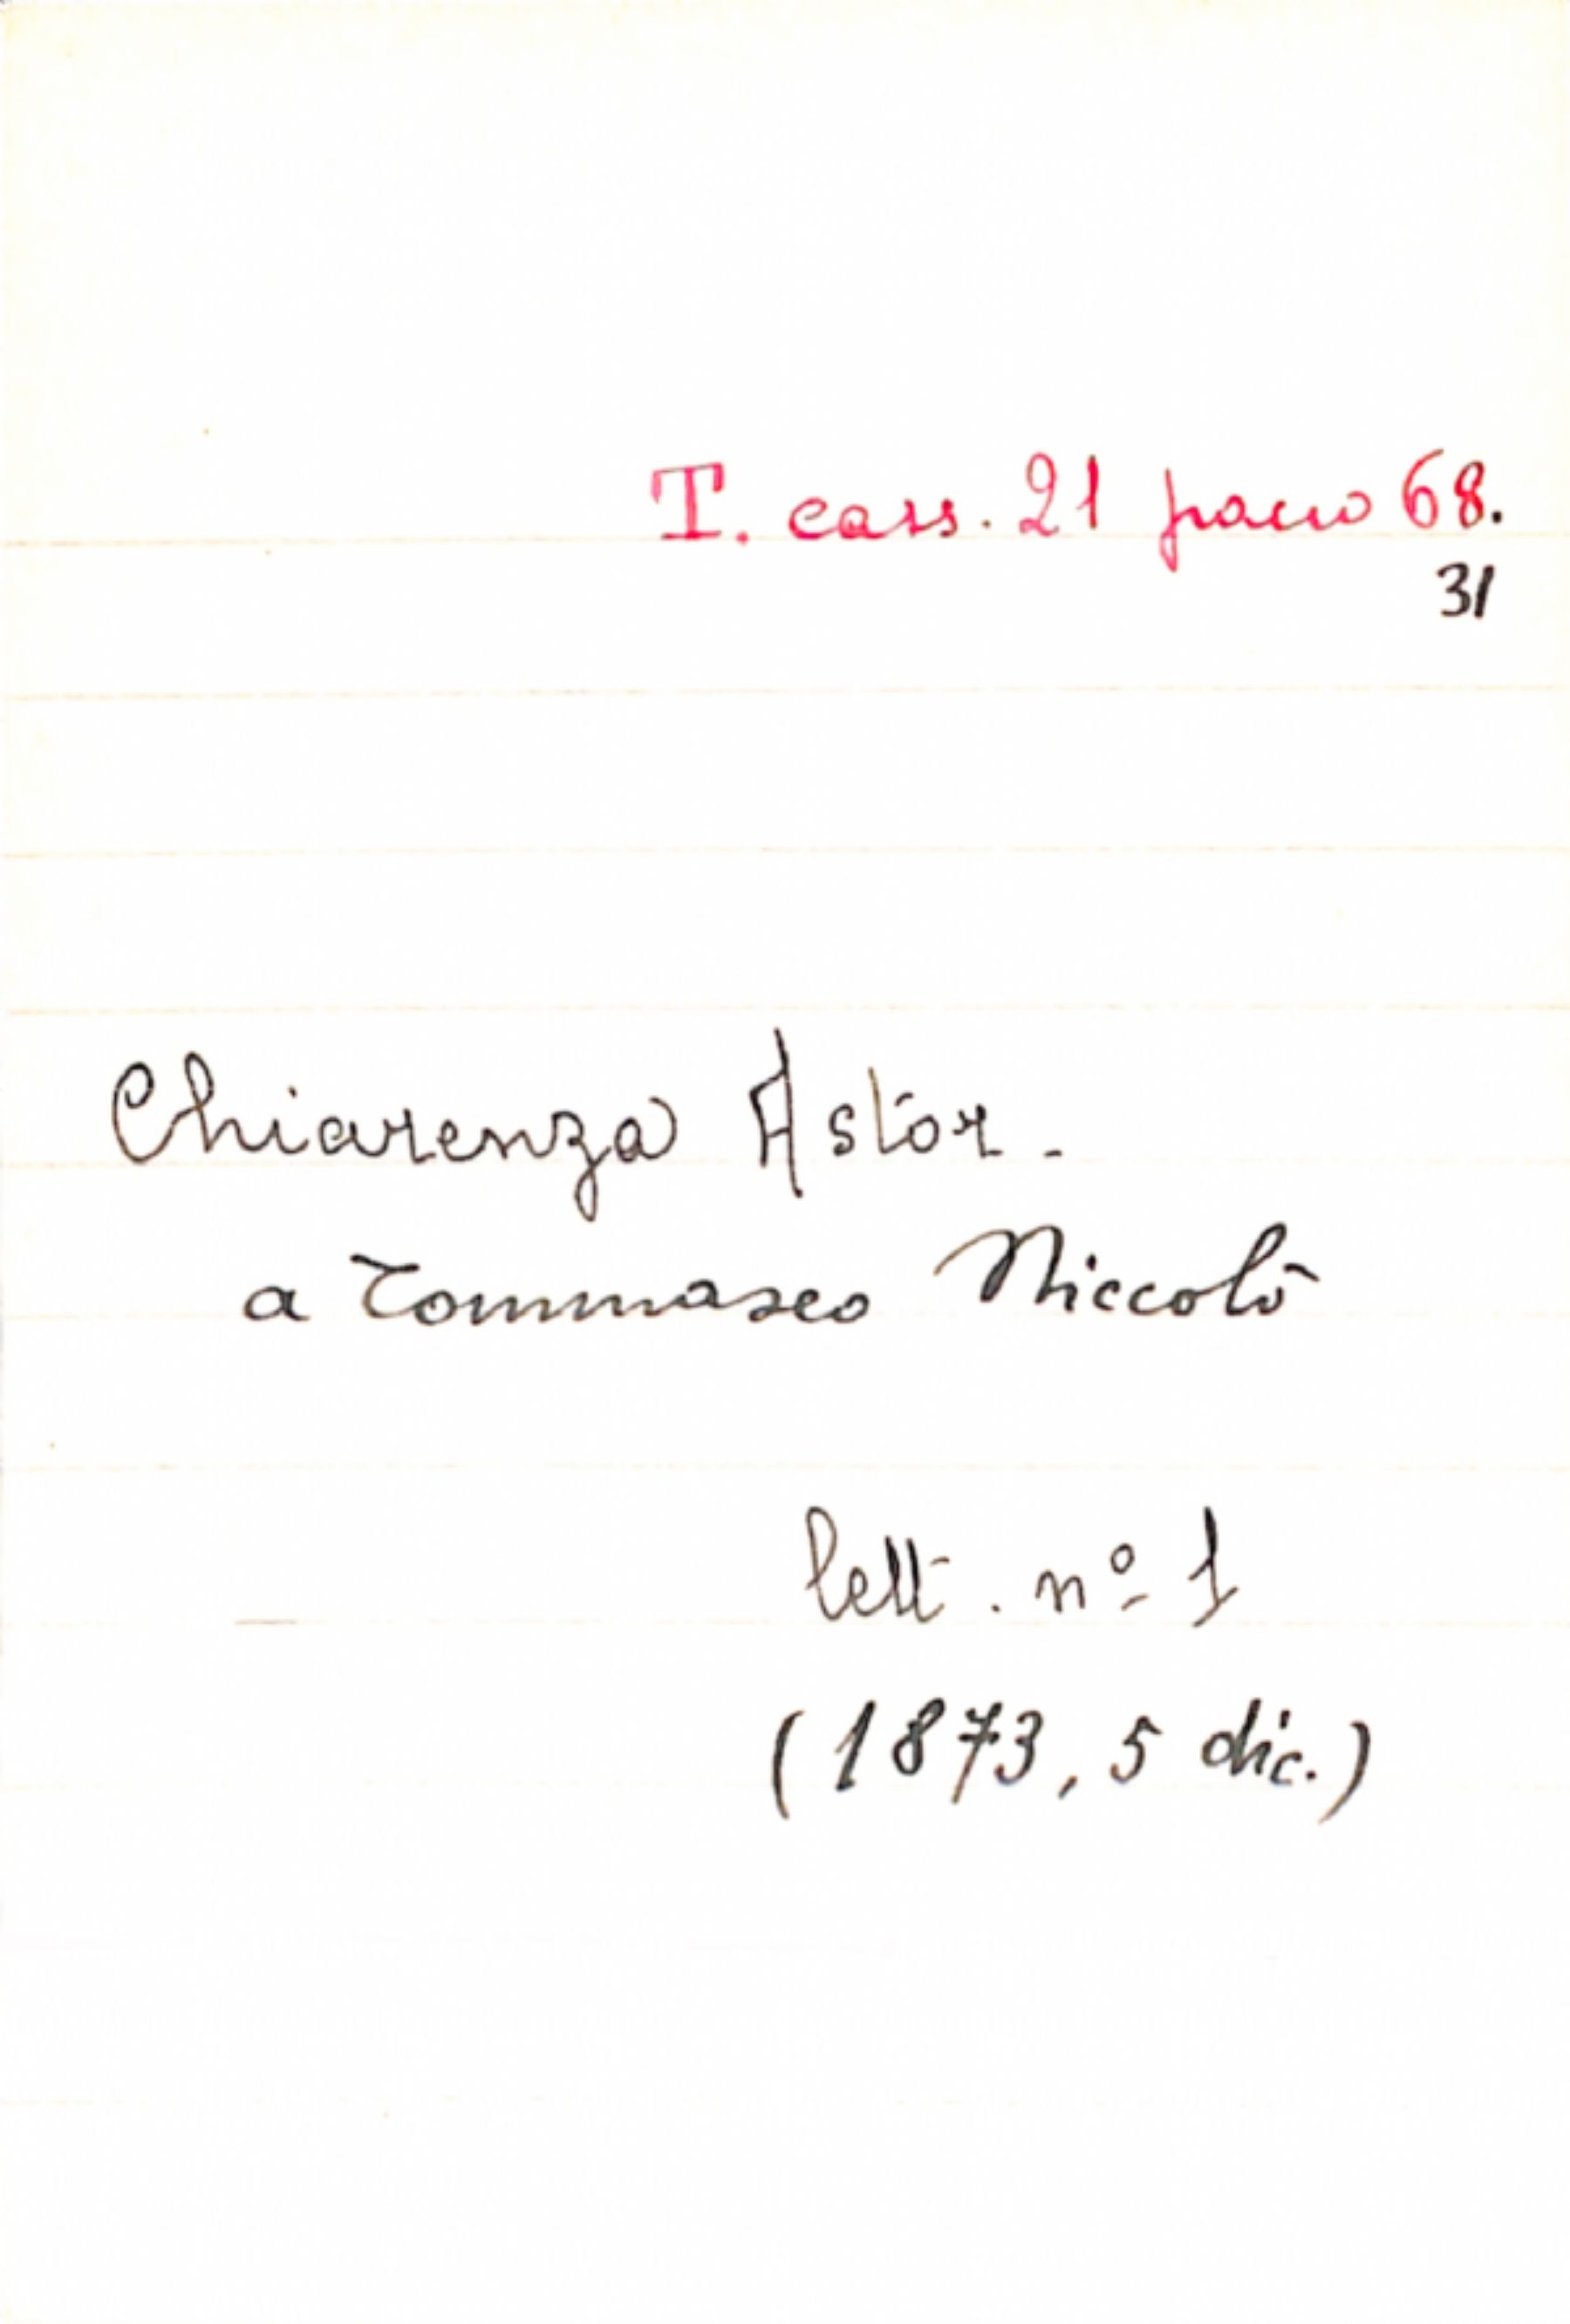 T. cass. 21 pacco 68.
31
Chiarenza Astor.
a Tommaseo Niccolò
lett. nº 1
(1873, 5 dic.)